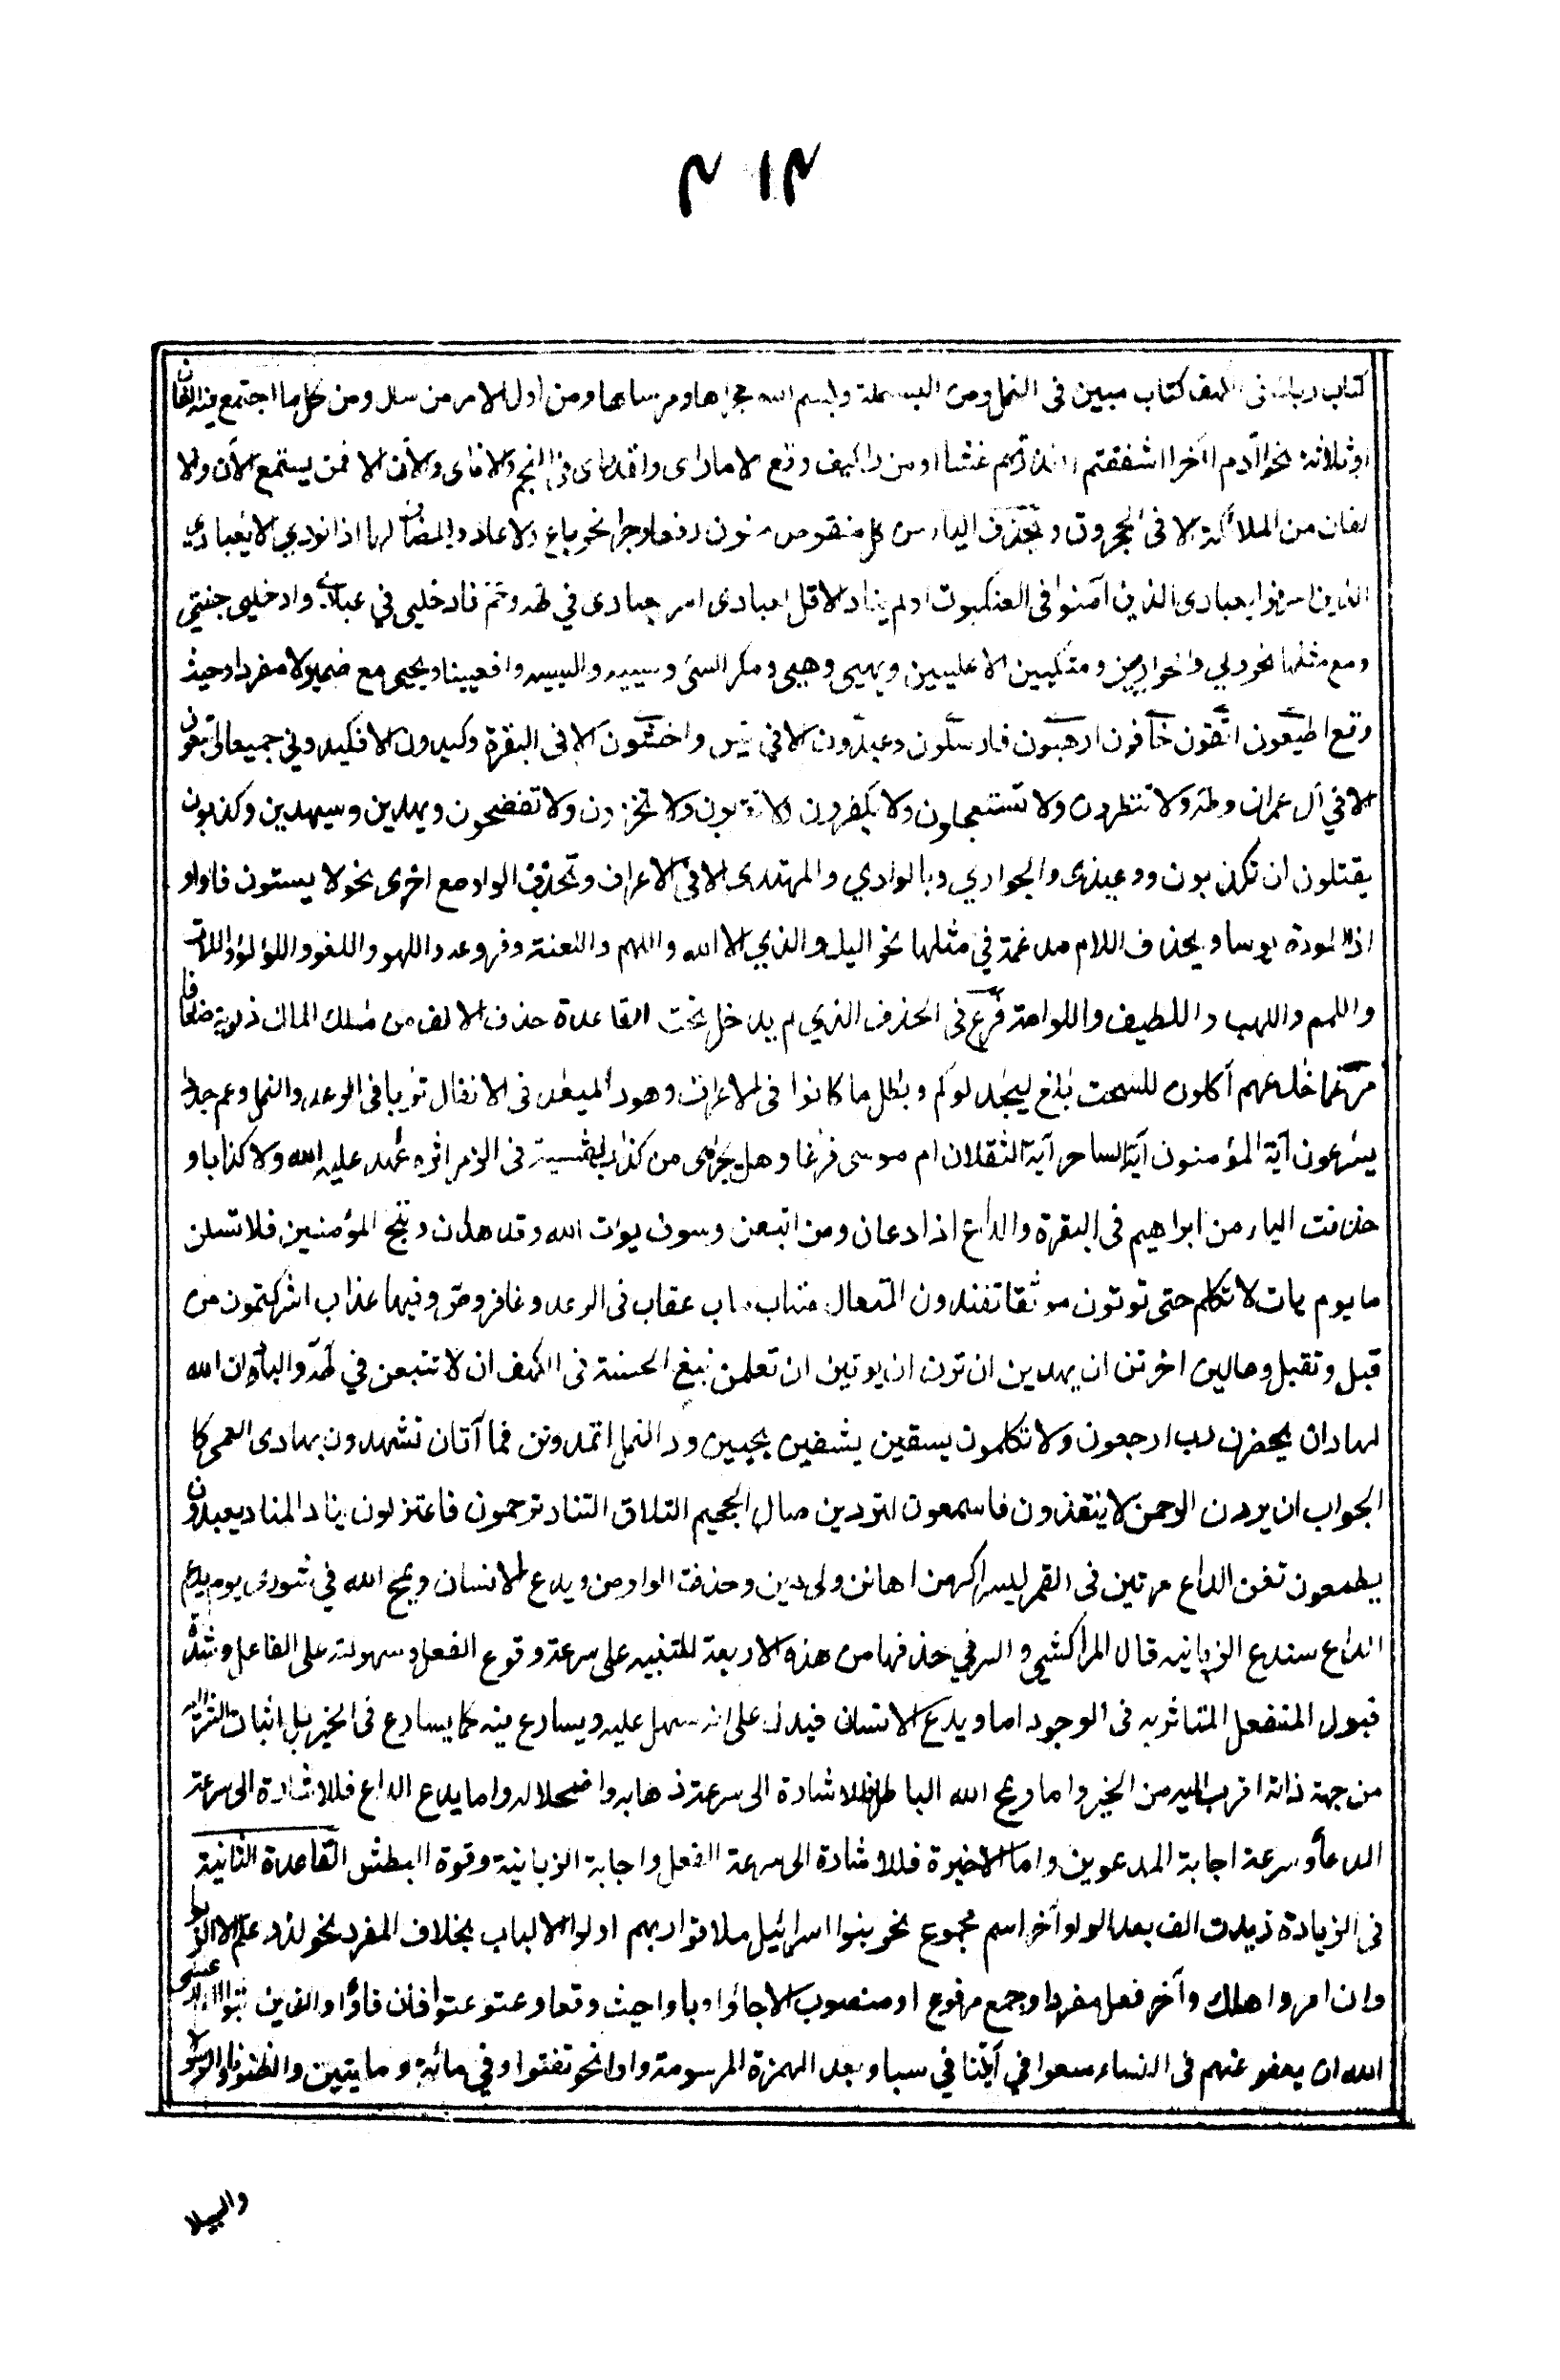 ٢١٢
كتاب ربك فى الكهف كتاب مبين فى النمل ومن البسملة وبسم الله مجراها ومرساها ومن اول الامر من سال ومن كل ما اجتمع فيه الفان
او ثلاثة نحو آدم اآخر ااشفقتم اانذرتهم غثاا ومن راكيف وقع لا ماراى ولقدراى فى النجم والا ناى والآن الا فمن يستمع الآن والا
لفان من الملائكة الا فى الحجر وق وتحذف الياء من كل منقوص منون رفعا وجرا نحو باغ ولا عاد والمضاف لها اذا نودي الا يعبادي
الذين اسرفوا يعبادى الذين آمنوا فى العنكبوت او لم يناد الا قل لعبادى اسر بعبادى في طه وحم فادخلى في عبادى وادخلى جنتي
ومع مثلها نحو ولي والحوارين ومتكيين الا عليين ويهيى وهيى ومكر السئ وسييه والسييه وافعيينا ويحيى مع ضمير لا مفردا وحيث
وقع اطيعون اتقون خافون ارهبون فارسلون وعبدون الا فى يس واخشون الا فى البقرة وكيدون الا فكيدوني جميعا واتبعون
الا في آل عمران وطه ولا تنظرون ولا تستعجلون ولا تكفرون ولا تقربون ولا تخزون ولا تفضحون ويهدين وسيهدين وكذبون
يقتلون ان تكذبون ووعيدى والجواري وبالوادي والمهتدى الا فى الاعراف وتحذف الواو مع اخرى نحو لا يستون فاواو
اذا المودة يوسا ويحذف اللام مدغمة في مثلها نحو اليل والذي الا الله واللهم واللعنة وفروعه واللهو واللغو واللؤلؤ واللات
واللمم واللهب واللطيف واللوامة فرع فى الحذف الذي لم يدخل تحت القاعدة حذف الالف من ملك الملك ذرية ضعافا
مرغما خدعهم اكلون للسحت بلغ ليجدلوكم وبطل ما كانوا فى الاعراف وهود الميعد فى الانفال تربا فى الرعد والنمل وعم جذذا
يسرعون آية المؤمنون آية الساحر آية الثقلان ام موسى فرغا وهل يجزى من كذب للقسية فى الزمر اثره عهد عليه الله ولا كذابا و
حذفت الياء من ابراهيم فى البقرة والداع اذا دعان ومن اتبعن وسوف يوت الله وقد هدان وننج المؤمنين فلا تسئلن
ما يوم يات لا تكلم حتى توتون موثقا تفندون المتعال متاب ماب عقاب فى الرعد وغافر وص وفيها عذاب اشركتمون من
قبل وتقبل دعا لين اخرتن ان يهدين ان ترن ان يوتين ان تعلمن نبغ الحسنة فى الكهف ان لا تتبعن في طه والباد وان الله
لهاد ان يحضرون رب ارجعون ولا تكلمون يسقين يشفين يحيين واد النمل اتمدونن فما آتان تشهدون بهادى العمى كا
الجواب ان يردن الرحمن لا ينقذون فاسمعون لتردين صال الجحيم التلاق التناد ترجمون فاعتزلون يناد المناد يعبدون
يطعمون تغن الداع مرتين فى القمر ليسر اكرمن اهانن ولى دين وحذفت الواو من ويدع الانسان ويمح الله في شورى يوم يدع
الداع سندع الزبانيه قال المراكشى والسر في حذفها من هذه الاربعة للتنبيه على سرعة وقوع الفعل وسهولته على الفاعل وشدة
قبول المنفعل المتاثر به فى الوجود اما ويدع الانسان فيدل على انه سهل عليه ويسارع فيه كما يسارع فى الخير بل اثبات الشر اليه
من جهة ذاته اقرب اليه من الخير واما ويمح الله الباطل فللاشارة الى سرعة ذهابه واضحلاله واما يدع الداع فللاشارة الى سرعة
الدعأ وسرعة اجابة المدعوين واما الاخيرة فللاشارة الى سرعة الفعل واجابة الزبانية وقوة البطش القاعدة الثانية
فى الزيادة زيدت الف بعد الواو آخر اسم مجموع نحو بنوا اسرائيل ملاقوا ربهم اولوا الالباب بخلاف المفرد نحو لذو علم الا الربوا
وان امروا هلك وآخر فعل مفرد او جمع مرفوع او منصوب الا جاؤا وباوا حيث وقعا وعتو عتوا فان فاؤا والذين تبوؤا الدار عسى
الله ان يعفو عنهم فى النساء سعوا في آيتنا في سبا وبعد الهمزة المرسومة واوا نحو تفتوا وفي مائة ومايتين والظنونا والرسولا
والسبيلا